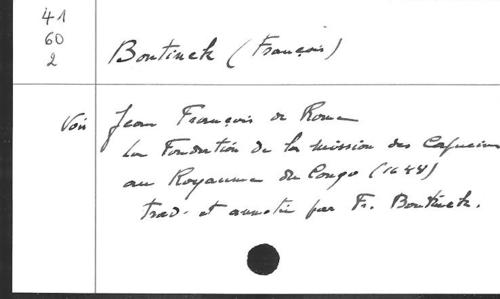 41
60
2
Bontinck (François)
Voir Jean François de Rome
La Fondation de la mission des Capucins
au Royaume du Congo (1648)
trad. et annotée par Fr. Bontinck.